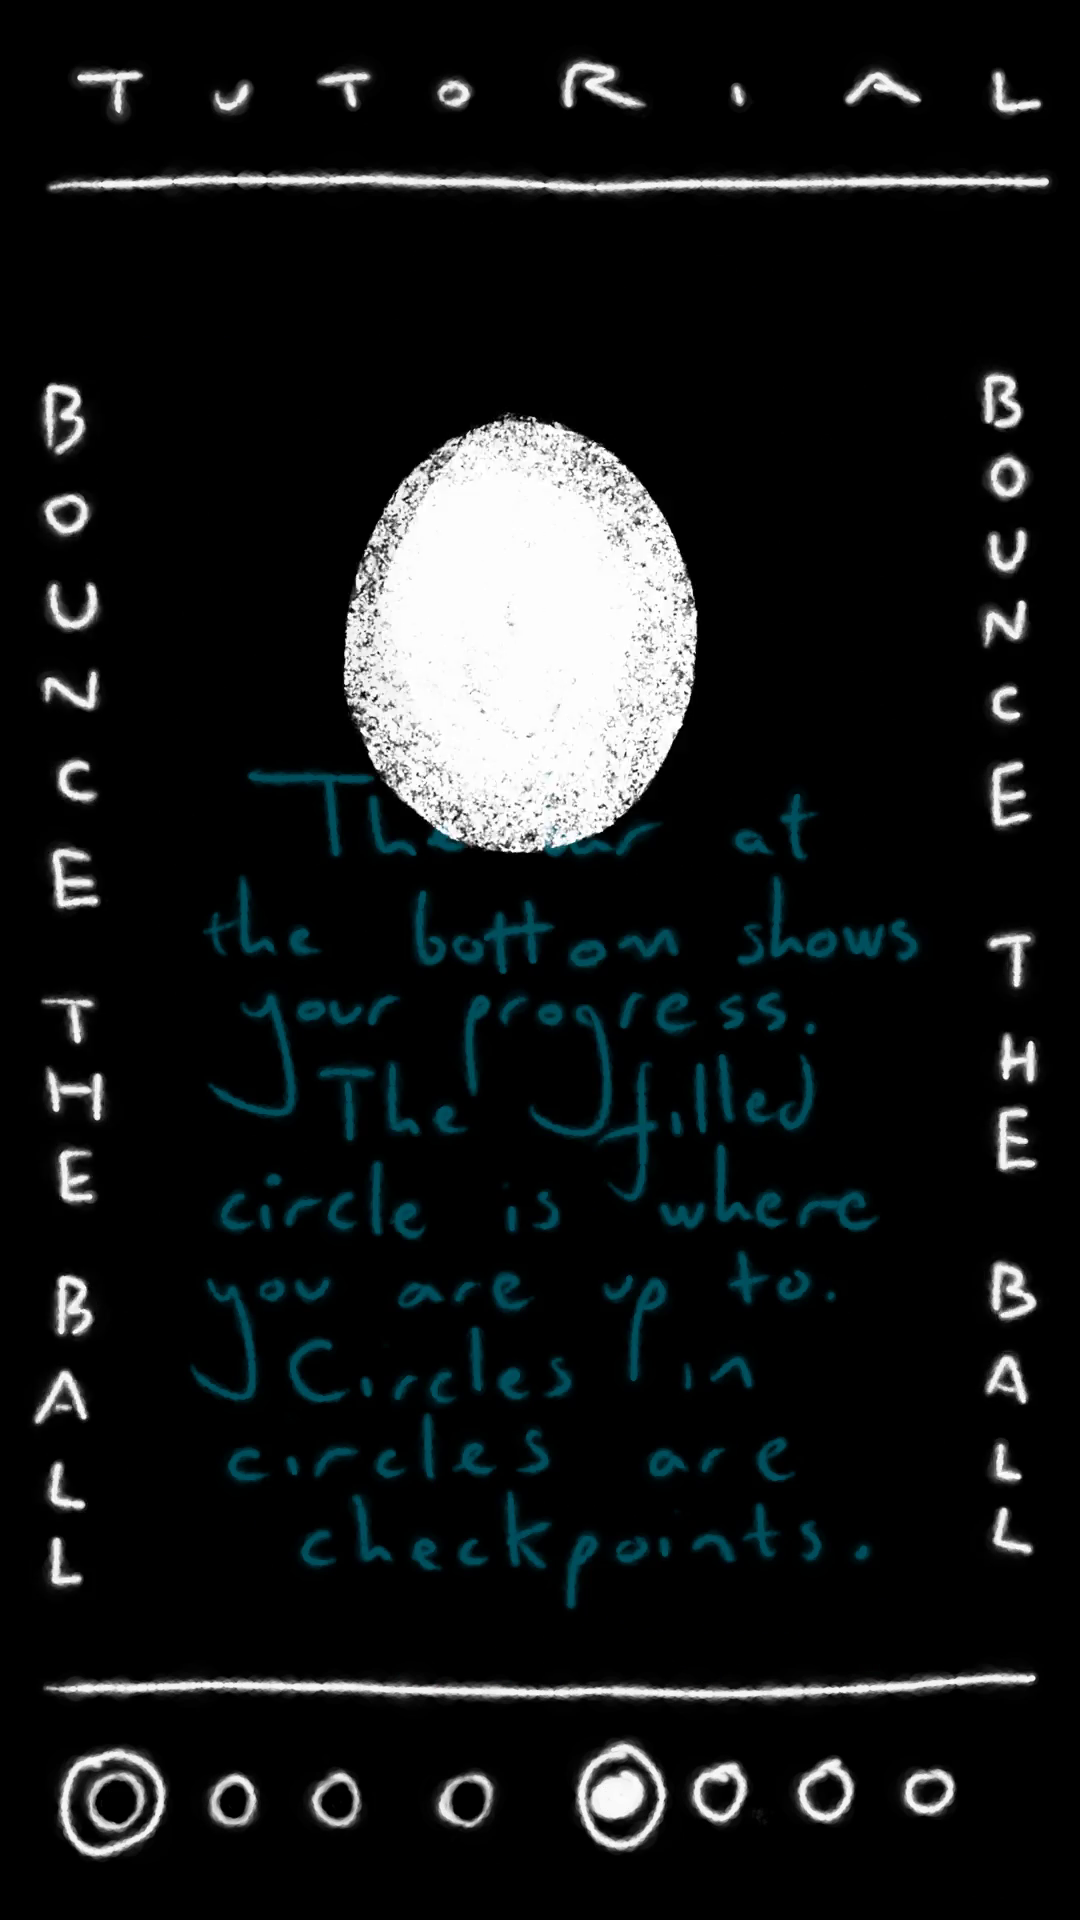 TUTORIAL
BOUNCE THE BALL
The bar at
the bottom shows
your progress.
The filled
circle is where
you are up to.
Circles in
circles are
checkpoints.
BOUNCE THE BALL